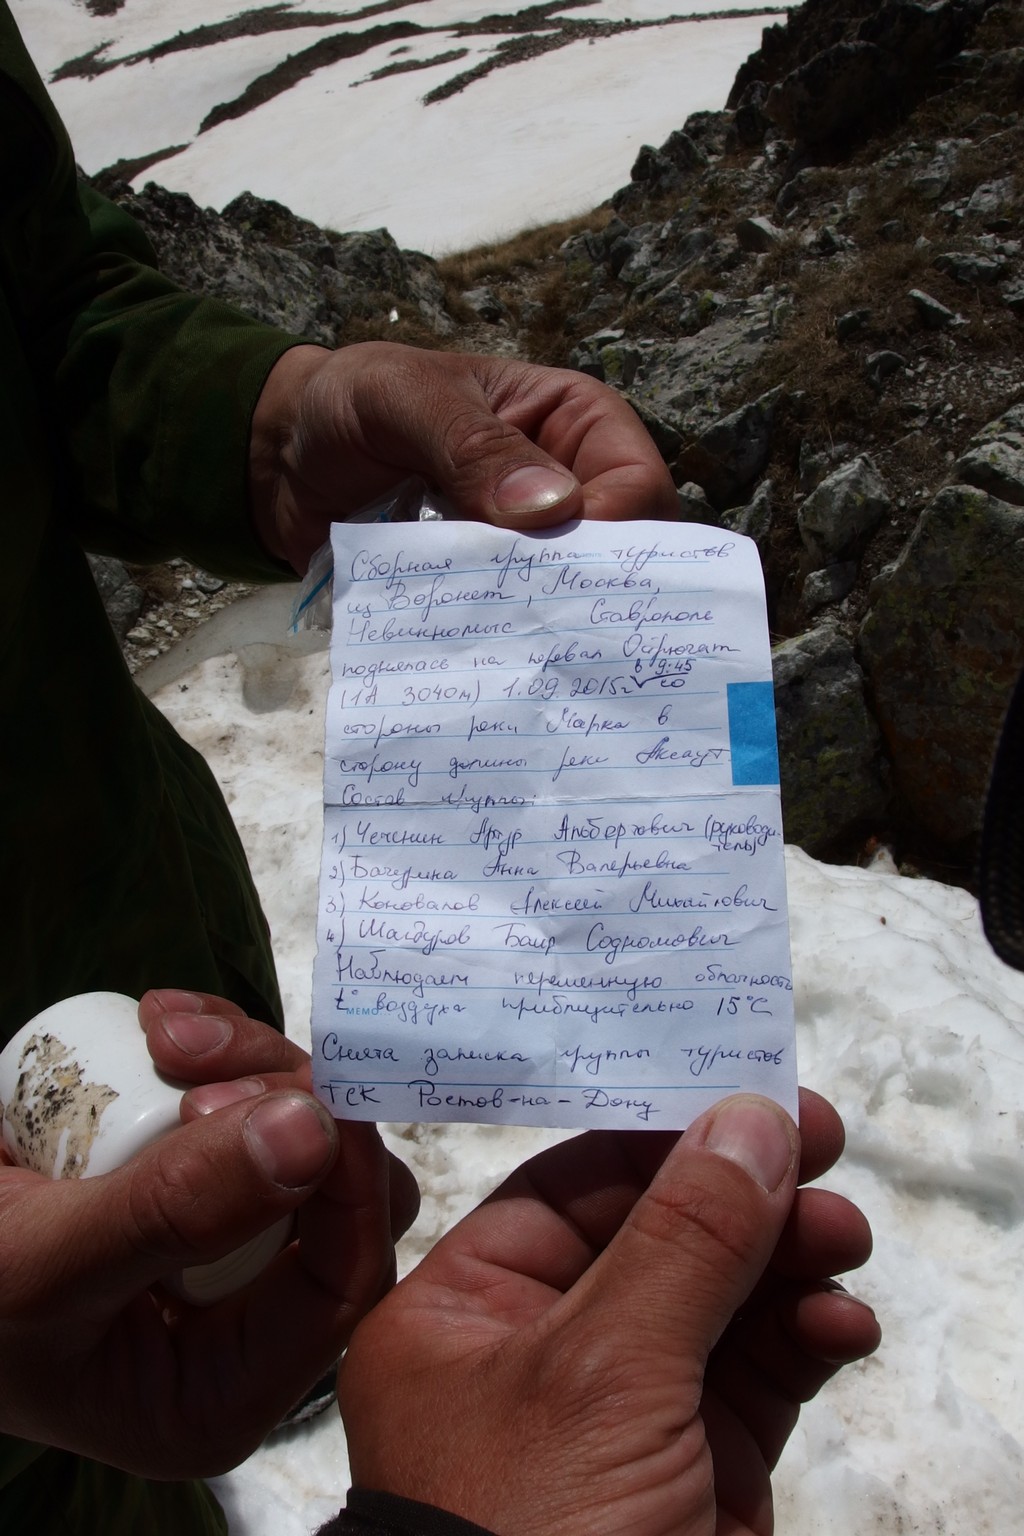 Сборная группа туристов
из Воронеж, Москва,
Невинномыс Ставрополь
поднялась на перевал Острюгат
в 9:45
(1А 3040м) 1.09.2015г со
стороны реки Марка в
сторону долины реки Аксаут.
Состав группы:
1) Чеченин Артур Альбертович (руководи-
тель)
2) Бачурина Анна Валерьевна
3) Коновалов Алексей Михайлович
4) Шагдуров Баир Содномович
Наблюдаем переменную облачность
t° воздуха приблизительно 15°С
МЕМО
Снята записка группы туристов
ТСК Ростов-на-Дону